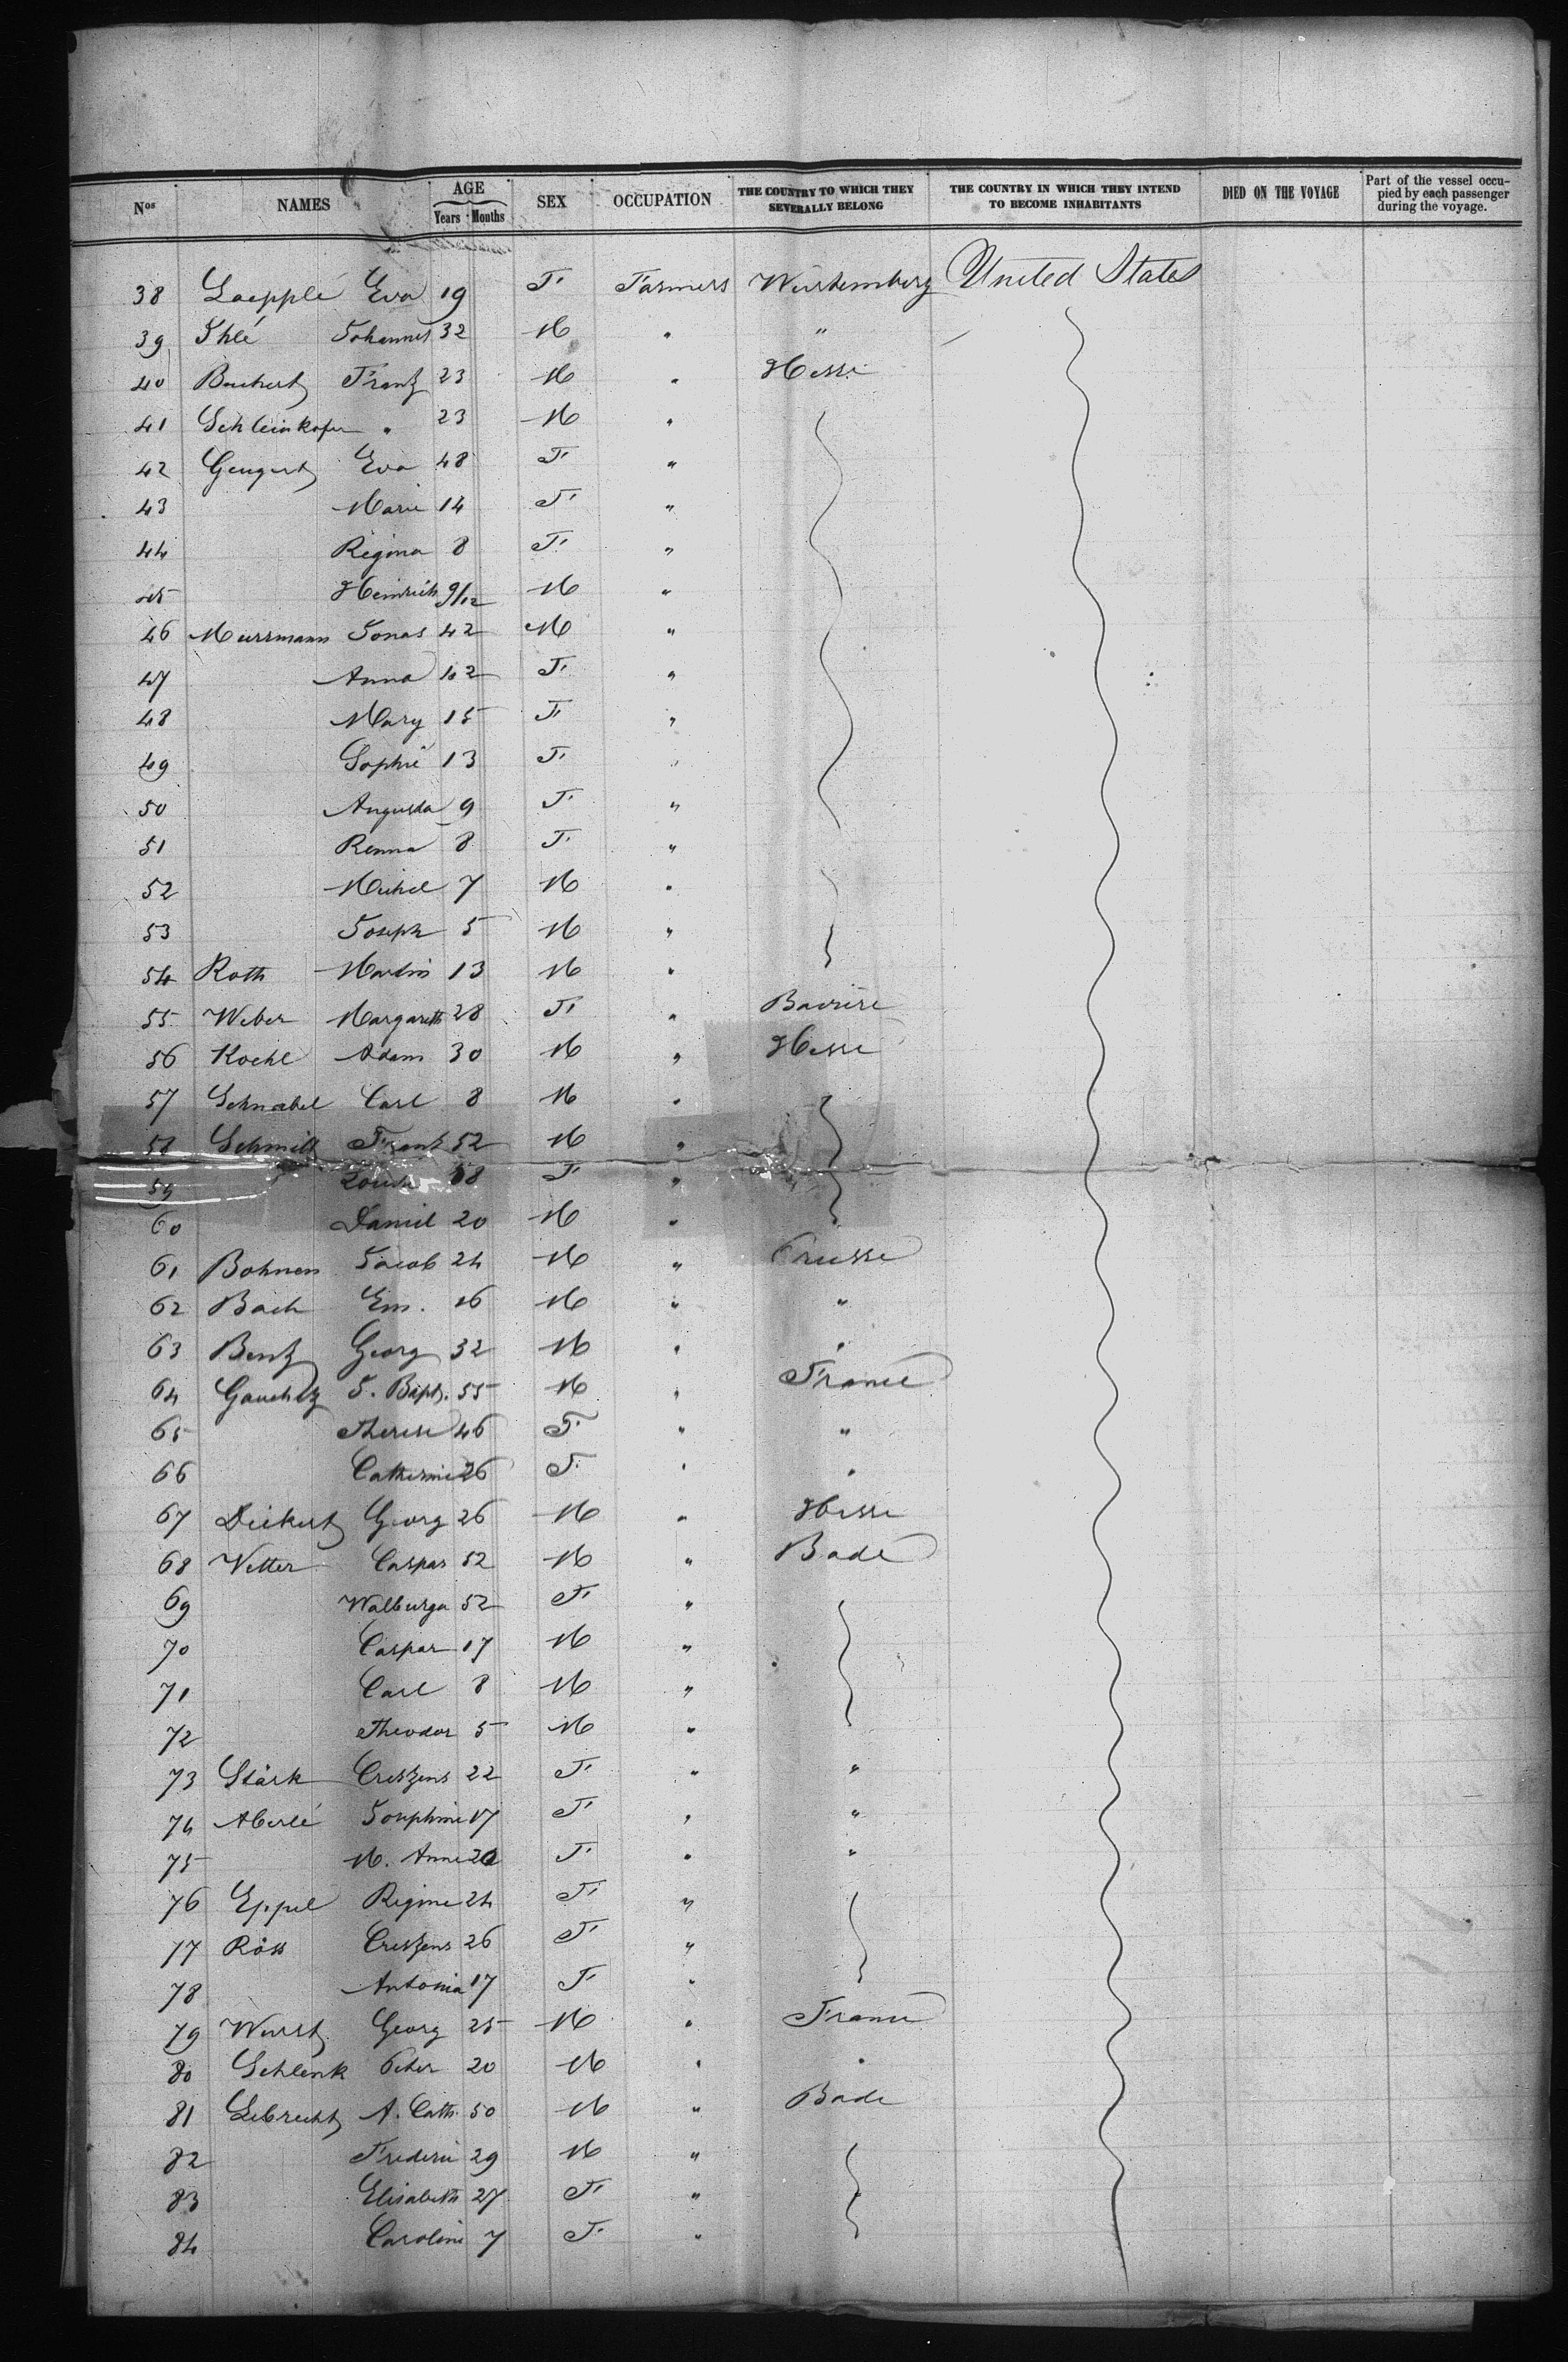 Nos NAMES AGE Years Months SEX OCCUPATION THE COUNTRY TO WHICH THEY SEVERALLY BELONG THE COUNTRY IN WHICH THEY INTEND TO BECOME INHABITANTS DIED ON THE VOYAGE Part of the vessel occupied by each passenger during the voyage.
38 Laepplé Eva 19 F. Farmers Würtemberg United States
39 Ihlé Johannes 32 M " "
40 Bachert Frantz 23 M " Hesse
41 Schleinkofer " 23 M "
42 Gengert Eva 48 F. "
43 Marie 14 F. "
44 Regina 8 F. "
45 Heinrich 9/12 M "
46 Murrmann Jonas 42 M "
47 Anna 42 F. "
48 Mary 15 F. "
49 Sophie 13 F. "
50 Augusta 9 F. "
51 Renna 8 F. "
52 Michel 7 M "
53 Joseph 5 M "
54 Roth Martin 13 M "
55 Weber Margareth 28 F. " Bavière
56 Koehl Adam 30 M " Hesse
57 Schnabel Carl 8 M "
58 Schmitt Frantz 52 M "
59 Louise 58 F. "
60 Daniel 20 M "
61 Bohnen Jacob 24 M " Prusse
62 Bach Em. 16 M " "
63 Bentz Georg 32 M " "
64 J. Bapt. 55 M " France
65 Therese 46 F. " "
66 Catherine 26 F. " "
67 Dickert Georg 26 M " Hesse
68 Vetter Caspar 52 M " Bade
69 Walburga 52 F. "
70 Caspar 17 M "
71 Carl 8 M "
72 Theodor 5 M "
73 Stärk Creszens 22 F. " "
74 Aberlé Josephine 17 F. " "
75 M. Anne F. " "
76 Eppel Regine 24 F. "
77 Röss Creszens 26 F. "
78 Antonia 17 F. "
79 Wurst Georg 25 M " France
80 Schlenk Peter 20 M " "
81 Lebrecht A. Cath. 50 M " Bade
82 Frederic 29 M "
83 Elisabeth 27 F. "
84 Caroline 7 F. "